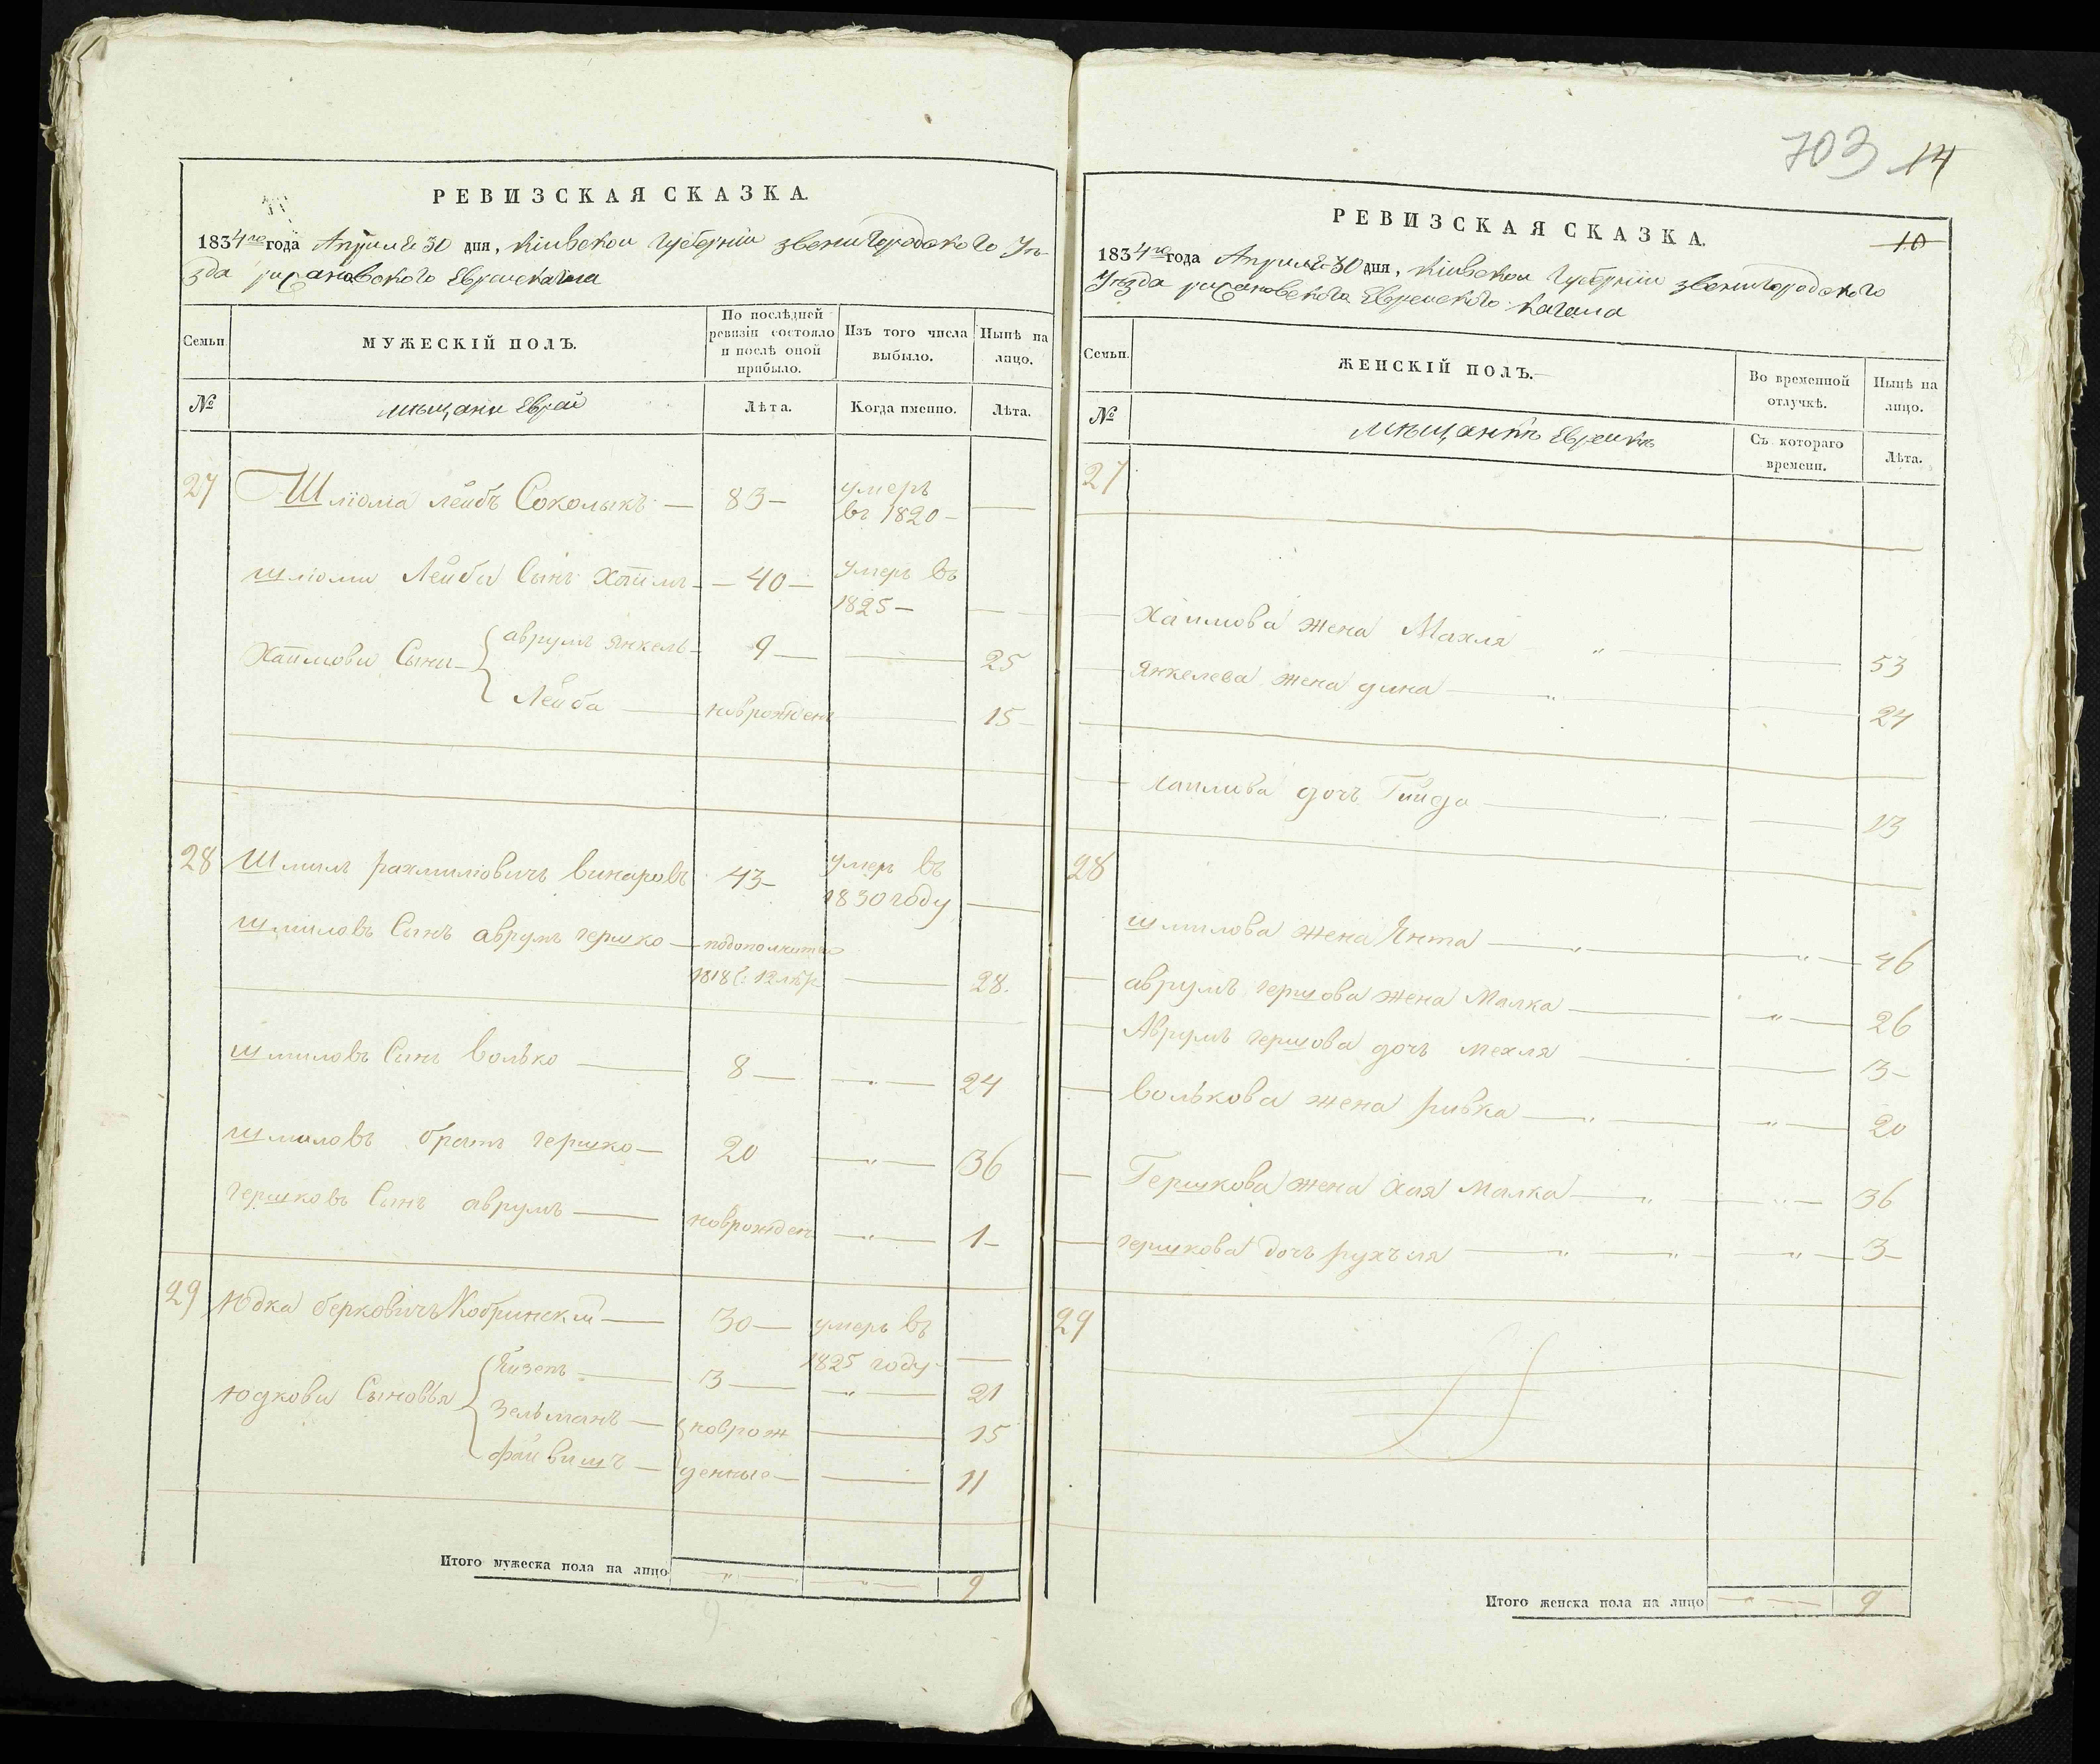 РЕВИЗСКАЯ СКАЗКА.
1834го года Апреля 30 дня, Кіивской Губерніи Звенигородского Уѣ-
зда
Семьи
МУЖЕСКІЙ ПОЛЪ.
По послѣдней ревизіи состояло и послѣ оной прибыло.
Изъ того числа выбыло.
Нынѣ на лицо.
№
мещани Евреи
Лѣта.
Когда именно.
Лѣта.
27 Шліома Лейбъ Соколыкъ — 83 — умеръ
въ 1820 —
шліоми Лейби Сынъ Хаимъ — 40 — умеръ въ
1825 —
Хаимови Сыни { аврумъ Янкель — 9 — 25
Лейба — новрожден — 15
28 Шмилъ рахмиліовичъ винаровъ 43 — умеръ въ
1830 году
шмиловъ Сынъ аврумъ гершко —
1818 28.
шмиловъ Сынъ волько — 8 — " — 24
шмиловъ братъ гершко — 20 — " — 36
гершковъ Сынъ аврумъ — новрожден — " — 1 —
29 Юдка берковичъ Кобринский — 30 — умеръ въ
1825 году
Юдкови Сыновья { — 3 — " — 21
Зельманъ — { новрож — 15
файвишъ — денные — 11
Итого мужеска пола на лицо " " 9
9
703 14
10
РЕВИЗСКАЯ СКАЗКА.
1834го года Апреля 30 дня, Кіивской Губерніи Звенигородского
Уѣзда Еврейского Кагала
Семьи.
ЖЕНСКІЙ ПОЛЪ.
Во временной отлучкѣ.
Нынѣ на лицо.
№
мещанкѣ Еврейки
Съ котораго времени.
Лѣта.
27
Хаимова жена Махля " — 53
Янкелева жена дина — " — 24
Хаимова дочь — 13
28
шмилова жена Янта — " — " — 46
аврумъ гершова жена Малка — " — 26
Аврумъ гершова дочь мехля — 3 —
волькова жена ривка — " — " — 20
Гершкова жена Хая малка — " — " — 36
гершкова дочь рухъля — " — " — " — 3
29
Итого женска пола на лицо " 9